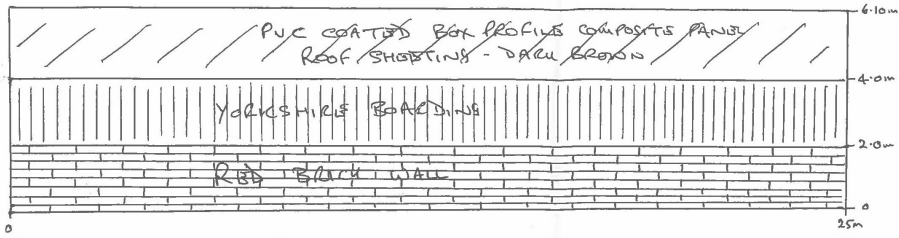 PVC COATED BOX PROFILE COMPOSITE PANEL
ROOF SHEETING - DARK BROWN
YORKSHIRE BOARDING
RED BRICK WALL
6.10m
4.0m
2.0m
0
0
25m